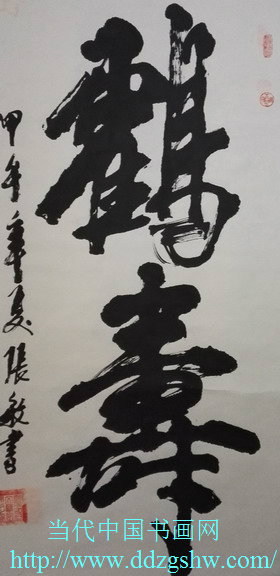 鹤寿
甲午年夏张敏书
当代中国书画网
http://www.ddzgshw.com/